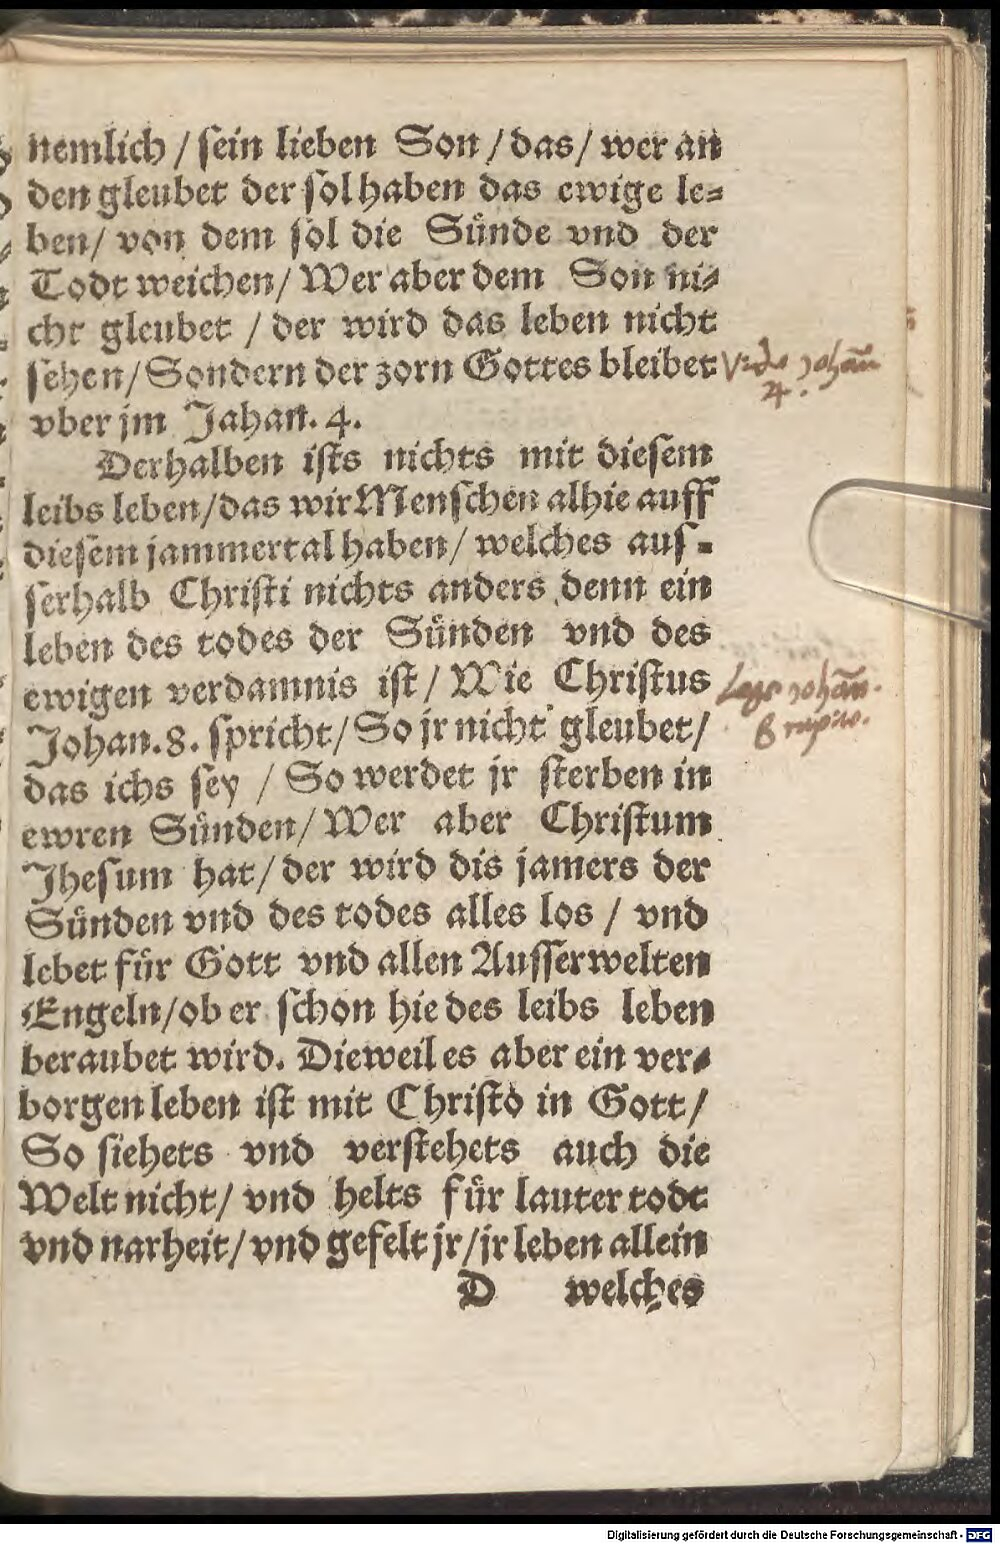 nemlich / sein lieben Son / das / wer an
den gleubet der sol haben das ewige le⸗
ben / von dem sol die Sünde vnd der
Todt weichen / Wer aber dem Son ni⸗
cht gleubet / der wird das leben nicht
sehen / Sondern der zorn Gottes bleibet
vber jm Jahan. 4.
Vide Johan̄
4.
Derhalben ists nichts mit diesem
leibs leben / das wir Menschen alhie auff
diesem jammertal haben / welches aus⸗
serhalb Christi nichts anders denn ein
leben des todes der Sünden vnd des
ewigen verdamnis ist / Wie Christus
Johan. 8. spricht / So jr nicht gleubet /
Johan̄.
8
das ichs sey / So werdet jr sterben in
ewren Sünden / Wer aber Christum
Jhesum hat / der wird dis jamers der
Sünden vnd des todes alles los / vnd
lebet für Gott vnd allen Ausserwelten
Engeln / ob er schon hie des leibs leben
beraubet wird. Dieweil es aber ein ver⸗
borgen leben ist mit Christo in Gott /
So siehets vnd verstehets auch die
Welt nicht / vnd helts für lauter todt
vnd narheit / vnd gefelt jr / jr leben allein
D welches
Digitalisierung gefördert durch die Deutsche Forschungsgemeinschaft - DFG